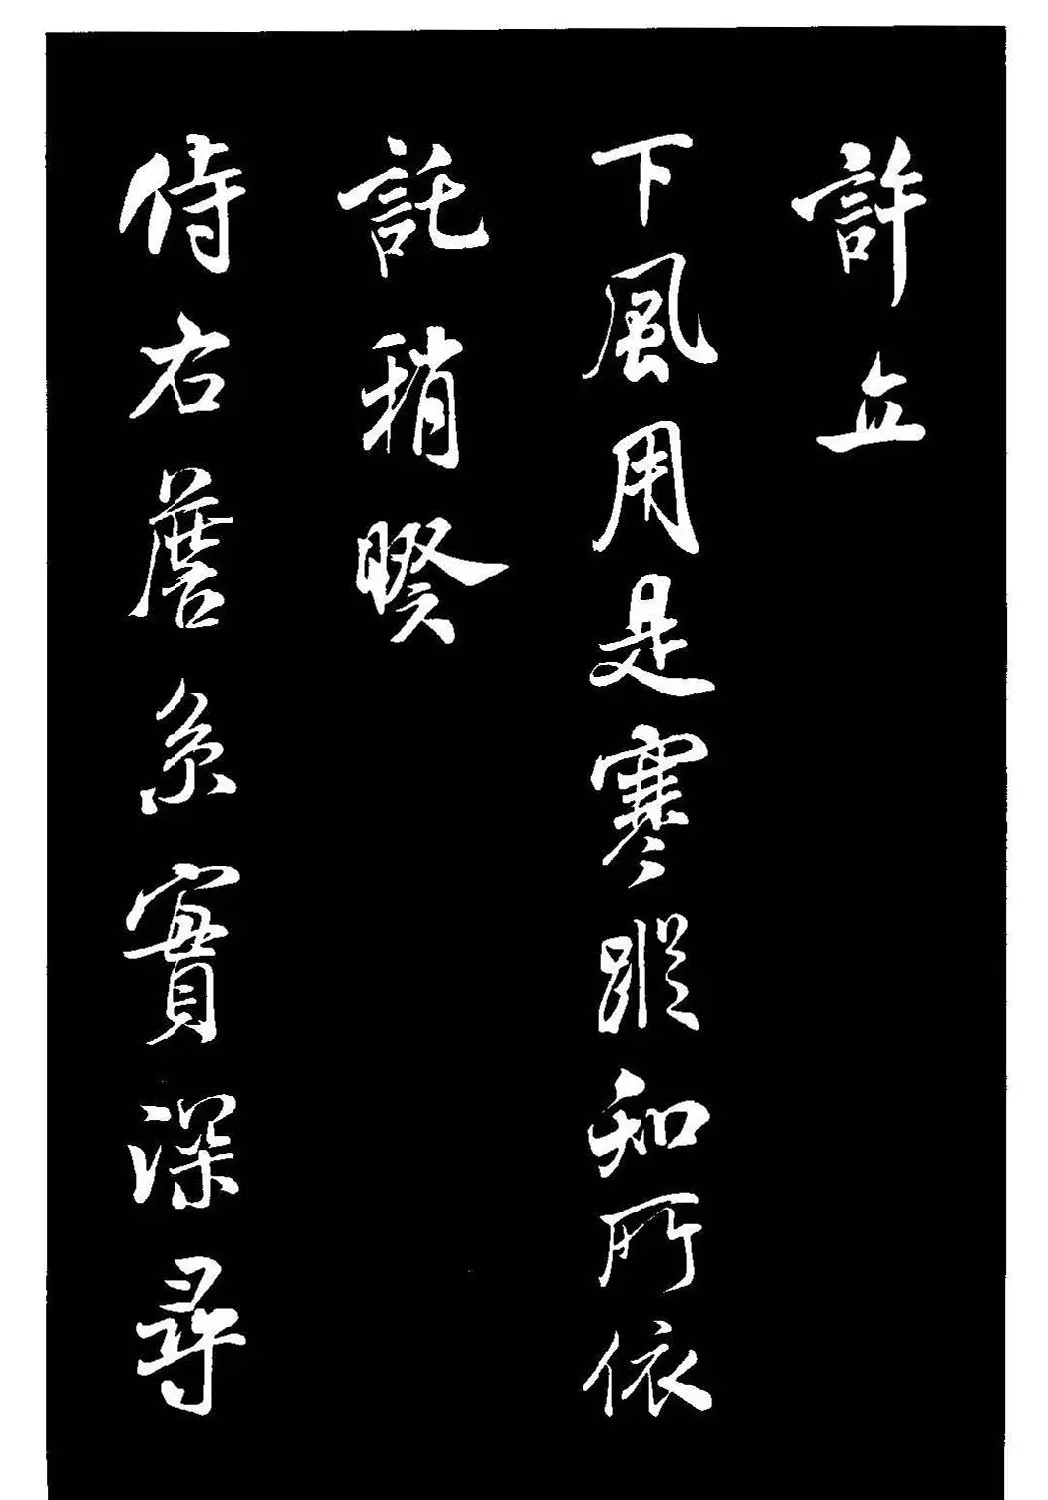 許立
下風用是寒蹤知所依
託稍暌
侍右詹系實深尋